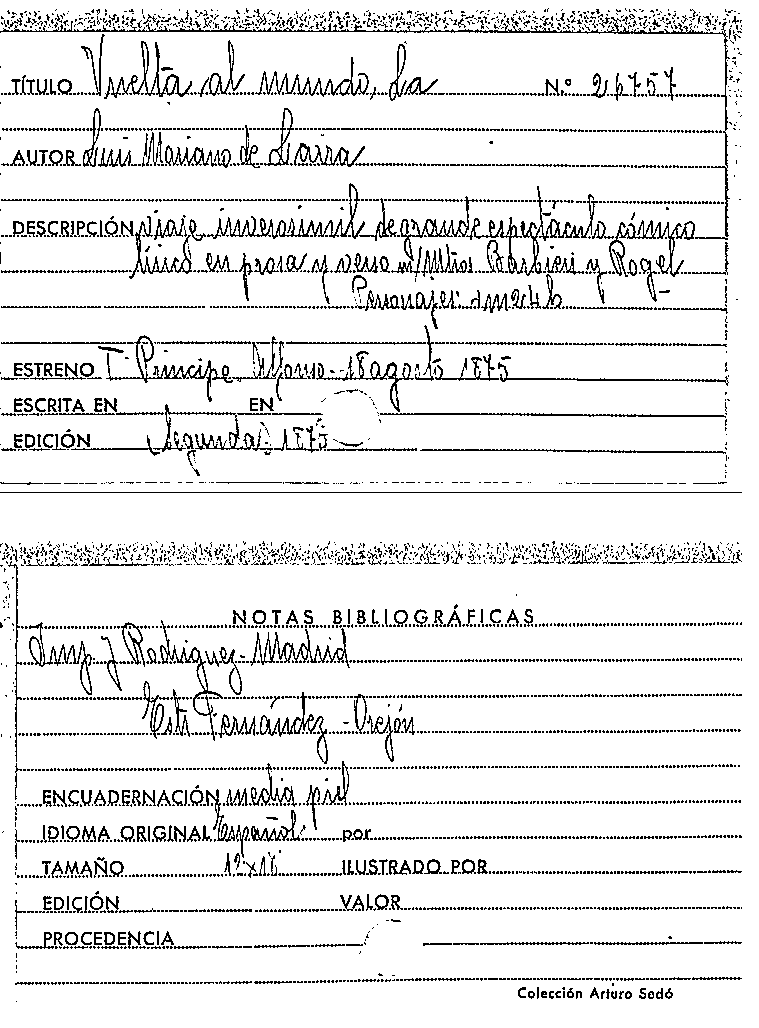 TÍTULO Vuelta al mundo, La N.º 26757
AUTOR Luis Mariano de Larra
DESCRIPCIÓN viaje inverosimil de grande espectáculo cómico
lírico en prosa y verso m/Mtros Barbieri y Rogel
Personajes: 2m24h
ESTRENO T. Principe Alfonso - 18 agosto 1875
ESCRITA EN EN
EDICIÓN Segunda 1875
NOTAS BIBLIOGRÁFICAS
Imp. J Rodriguez - Madrid
Estr Fernández - Orejón
ENCUADERNACIÓN media piel
IDIOMA ORIGINAL Español por
TAMAÑO 12x18 ILUSTRADO POR
EDICIÓN VALOR
PROCEDENCIA
Colección Arturo Sedó